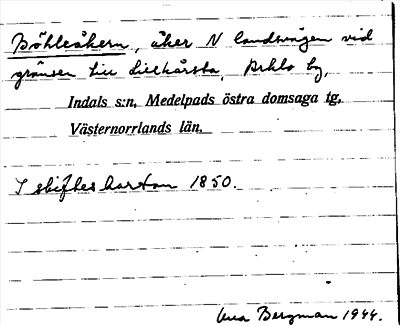 Böhleåkern, åker N landsvägen vid
gränsen till Lillhårsta, by,
Indals s:n, Medelpads östra domsaga tg,
Västernorrlands län.
I skifteskartan 1850.
Bergman 1944.